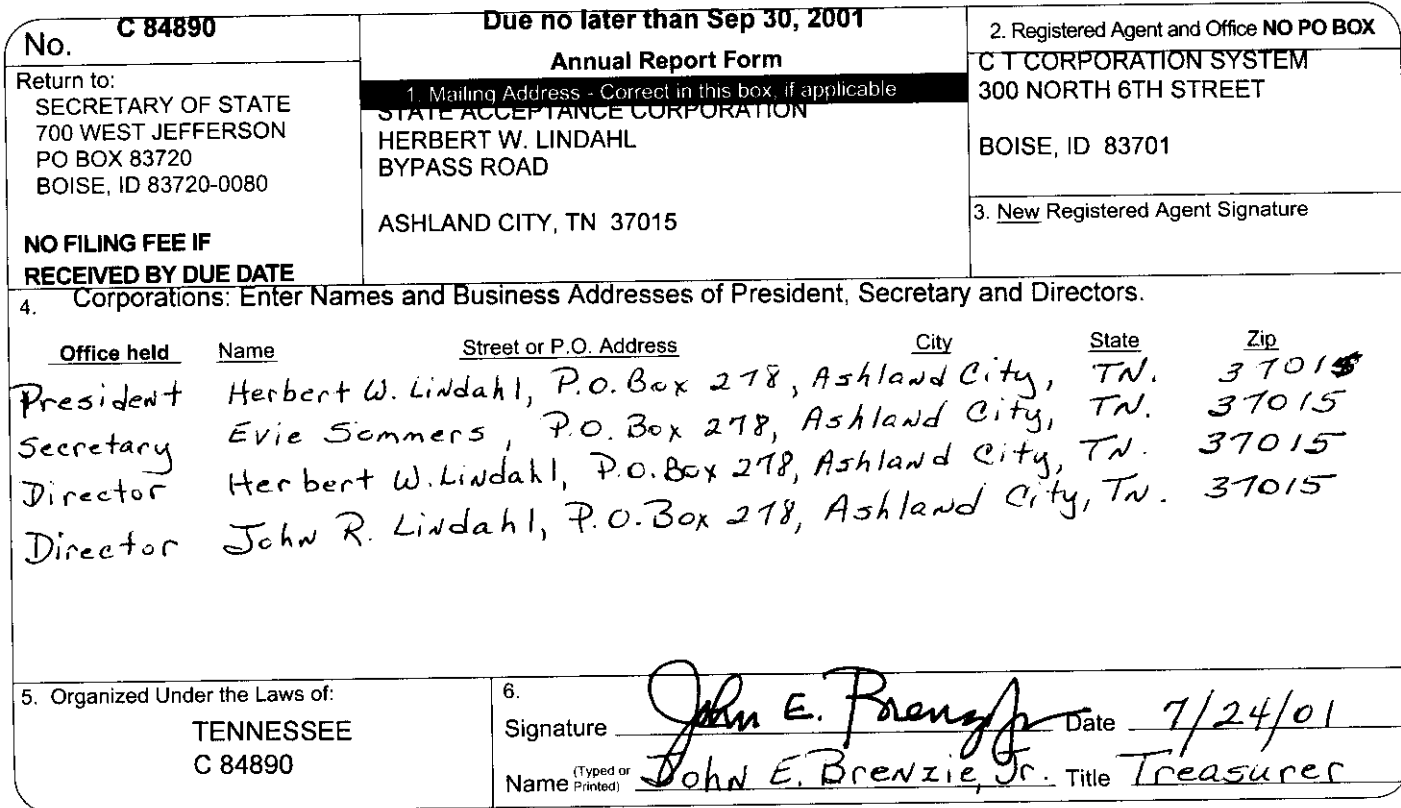 No. C 84890
Return to:
SECRETARY OF STATE
700 WEST JEFFERSON
PO BOX 83720
BOISE, ID 83720-0080
NO FILING FEE IF
RECEIVED BY DUE DATE
Due no later than Sep 30, 2001
Annual Report Form
1. Mailing Address - Correct in this box, if applicable
STATE ACCEPTANCE CORPORATION
HERBERT W. LINDAHL
BYPASS ROAD
ASHLAND CITY, TN 37015
2. Registered Agent and Office NO PO BOX
C T CORPORATION SYSTEM
300 NORTH 6TH STREET
BOISE, ID 83701
3. New Registered Agent Signature
4. Corporations: Enter Names and Business Addresses of President, Secretary and Directors.
Office held Name Street or P.O. Address City State Zip
President Herbert W. Lindahl, P.O. Box 278, Ashland City, TN. 37015
Secretary Evie Sommers, P.O. Box 278, Ashland City, TN. 37015
Director Herbert W. Lindahl, P.O. Box 278, Ashland City, TN. 37015
Director John R. Lindahl, P.O. Box 278, Ashland City, TN. 37015
5. Organized Under the Laws of:
TENNESSEE
C 84890
6.
Signature John E. Brenzie Jr Date 7/24/01
Name (Typed or Printed) John E. Brenzie, Jr. Title Treasurer